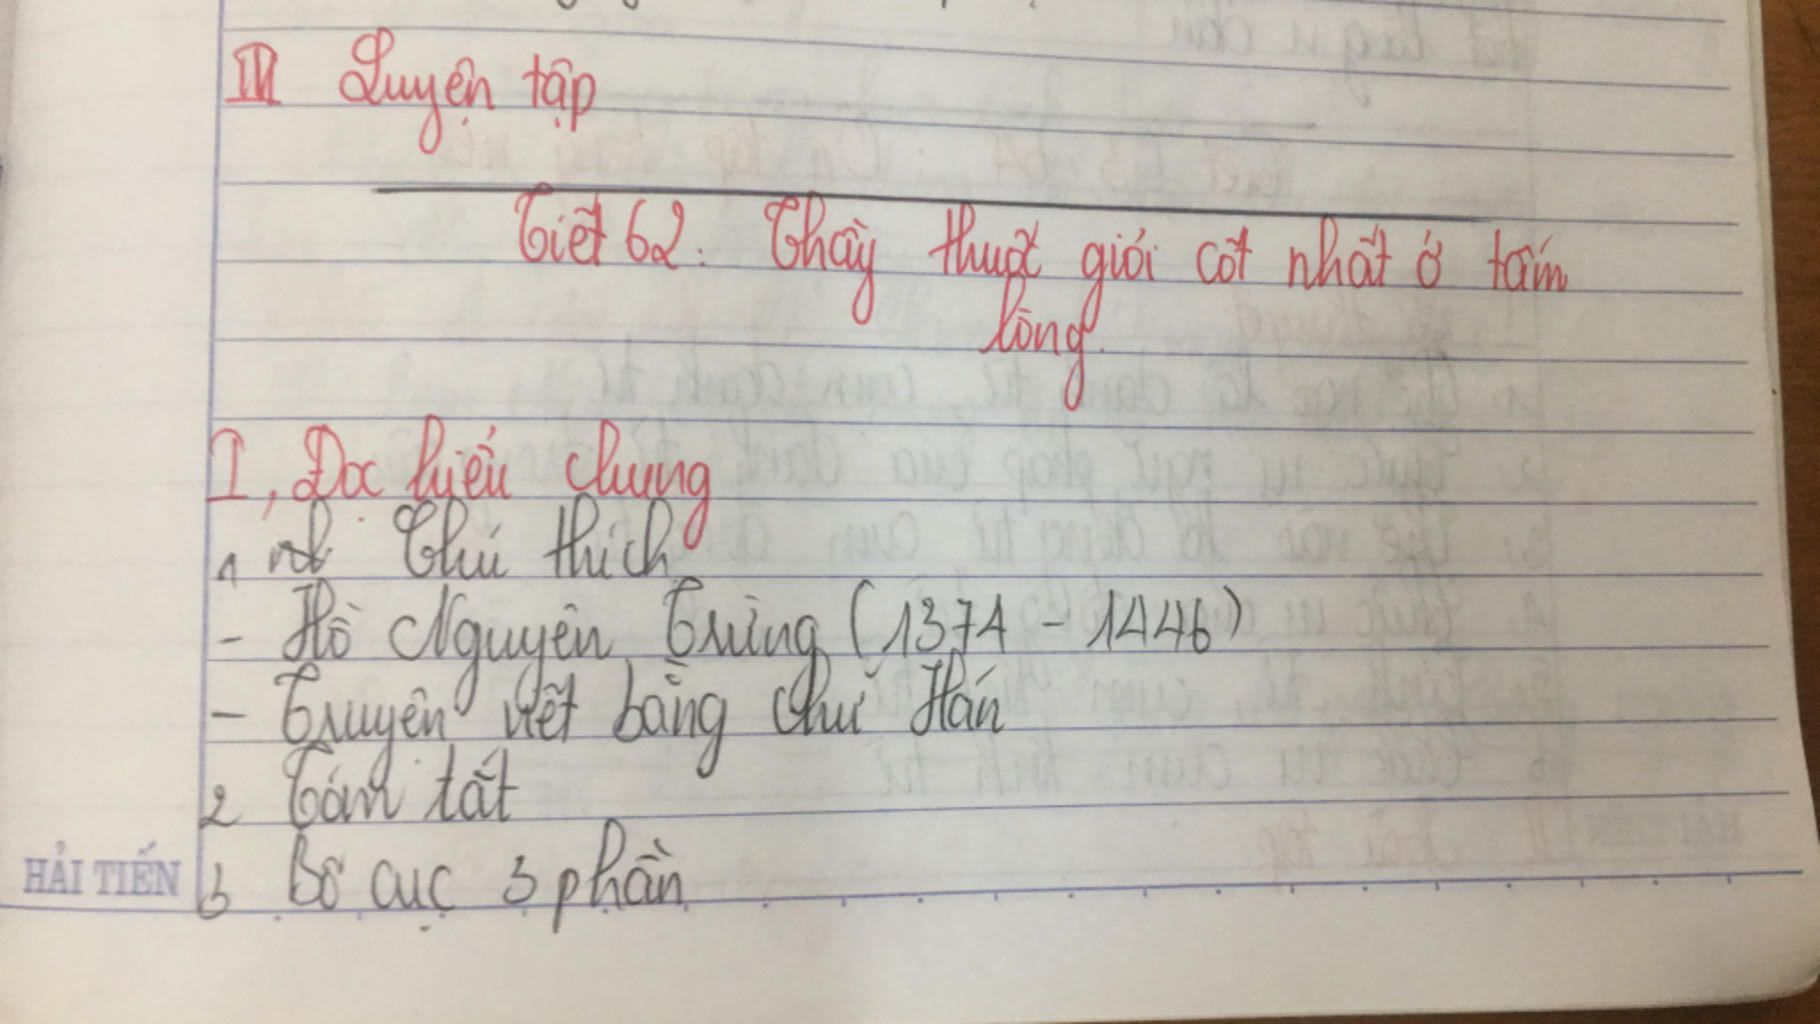 III Luyện tập
Tiết 62: Thầy thuốc giỏi cốt nhất ở tấm
lòng.
I, Đọc hiểu chung
1 Chú thích
- Hồ Nguyên Trừng (1374 - 1446)
- Truyện viết bằng chữ Hán
2 Tóm tắt
3 Bố cục 3 phần
HẢI TIẾN